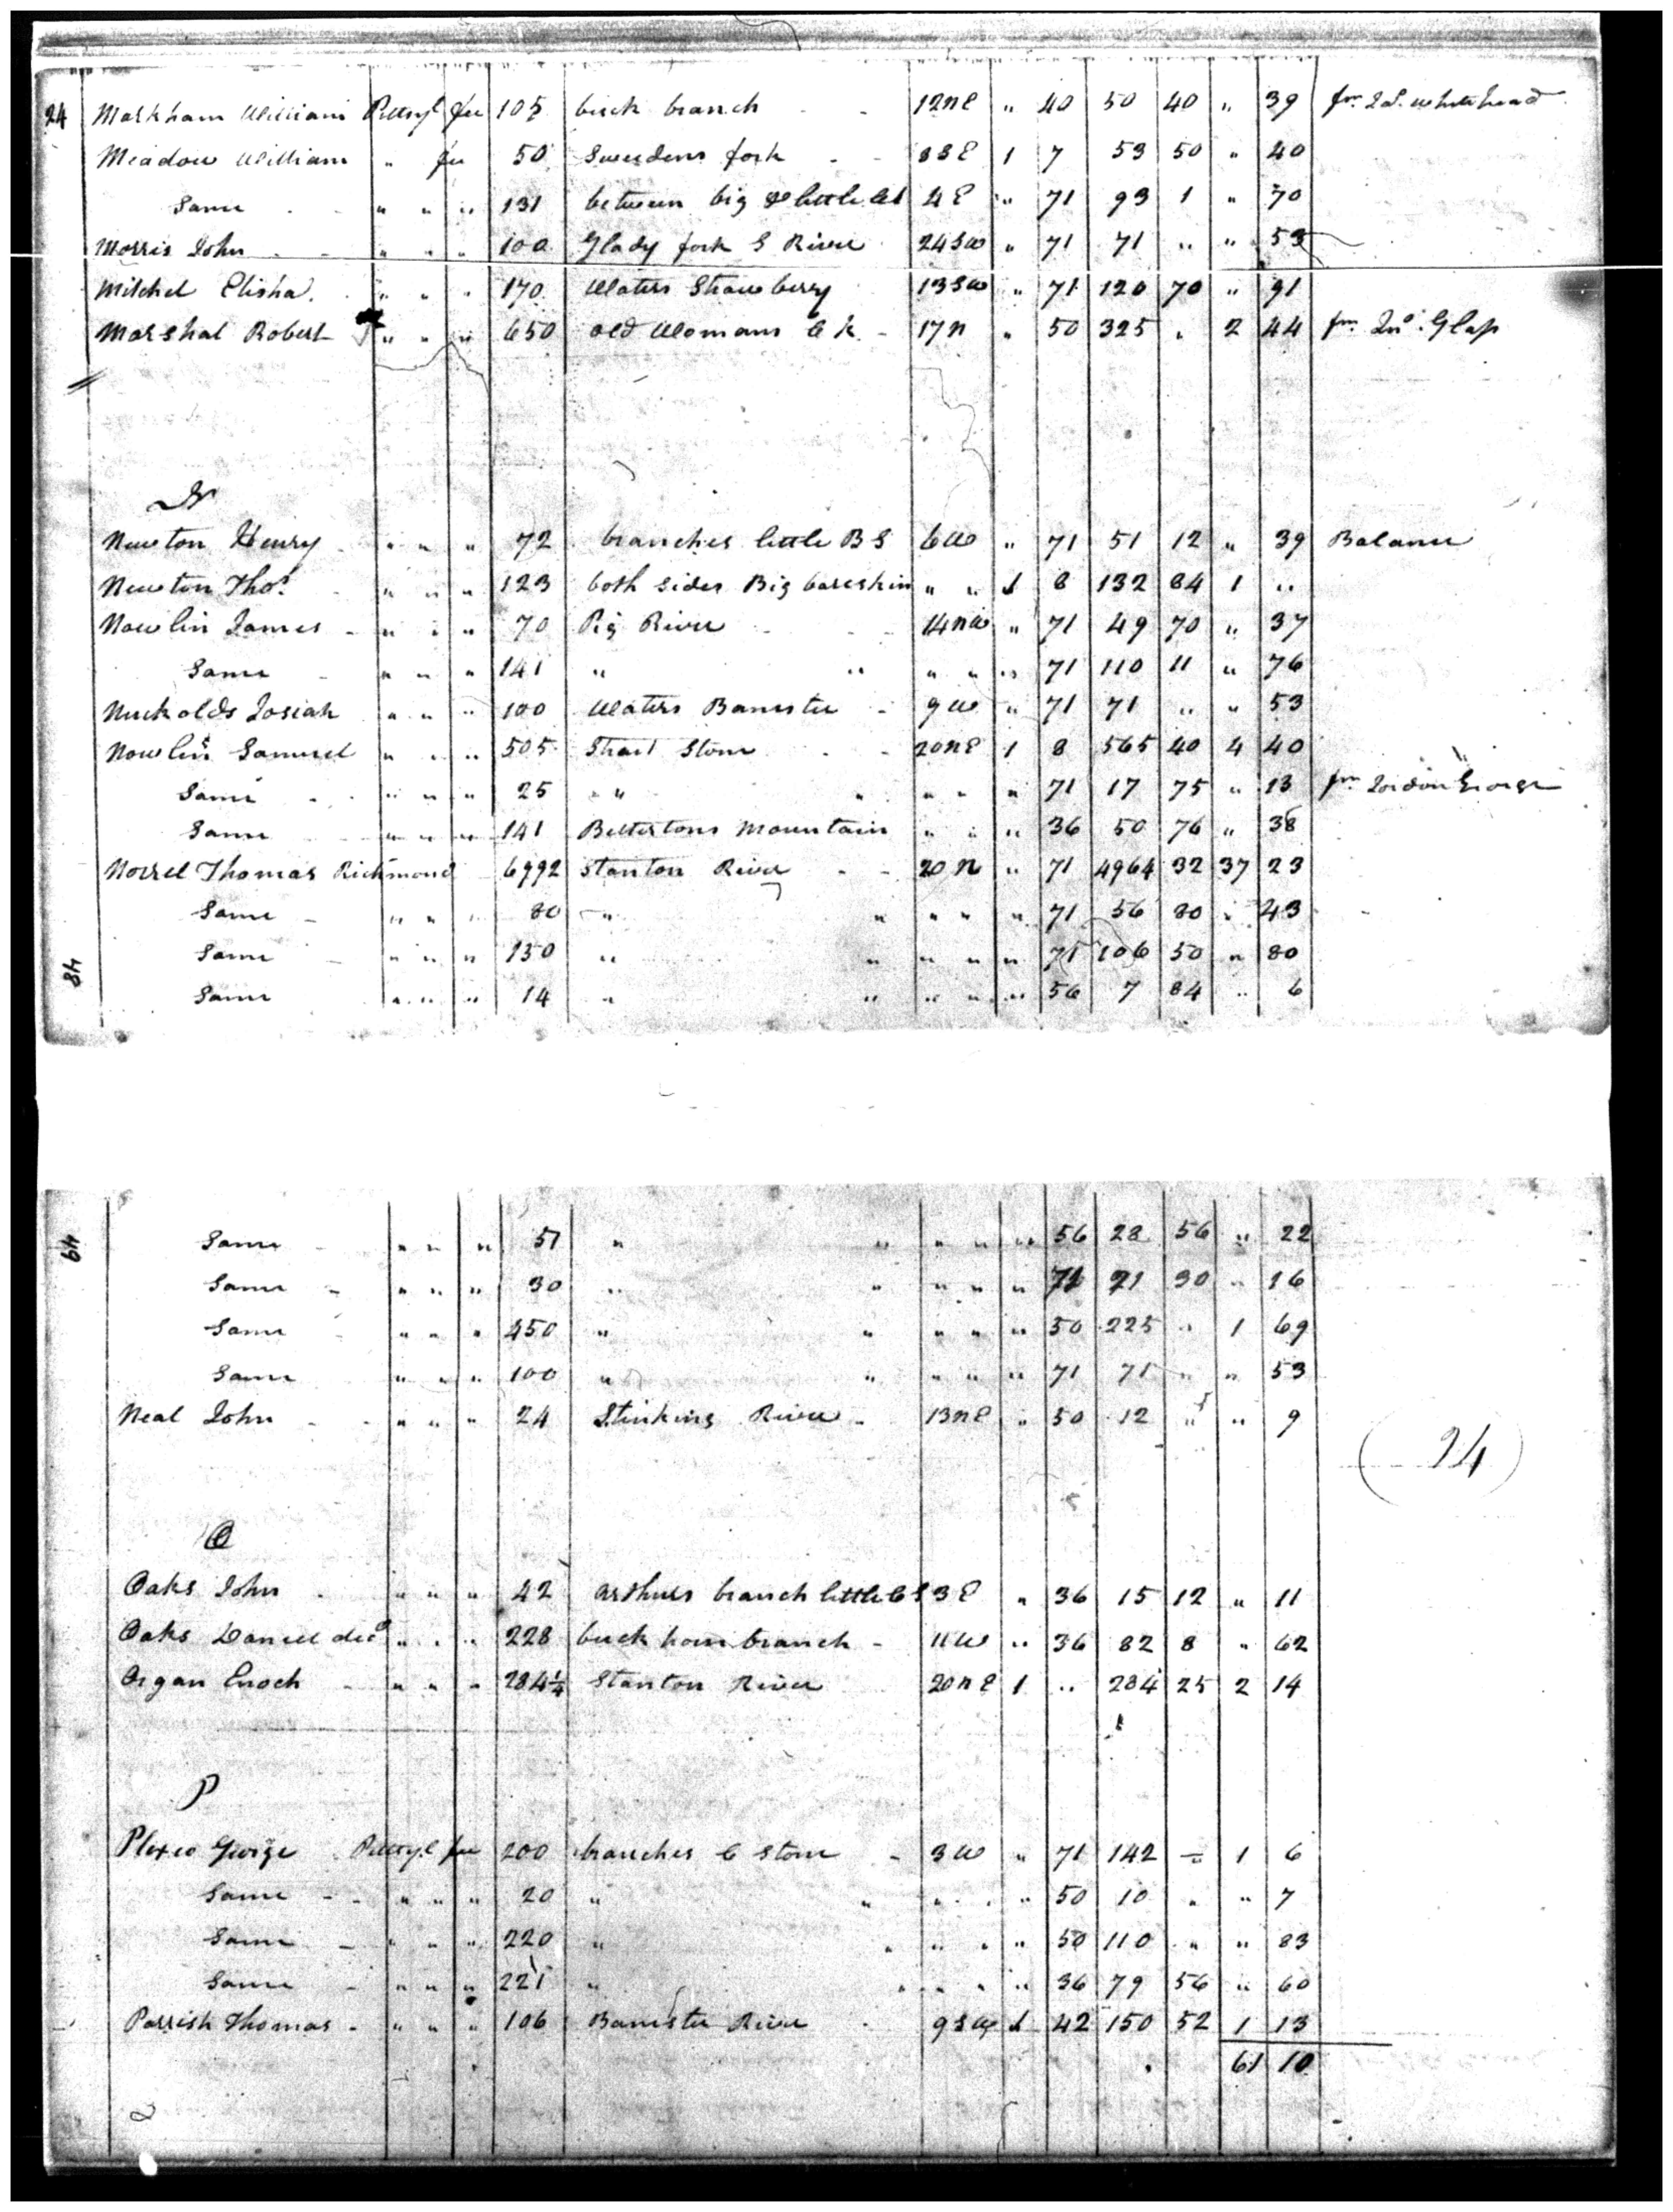 24 Markham William Pittsyl fee 105 buck branch - - 12 n E " 40 50 40 " 39 fm Jd. Whitehead
Meadow William " fee 50 Sweedens fork - - 8 S E 1 7 53 50 " 40
Same - - " " " 131 between big & little 4 E " 71 93 1 " 70
Morris John - - " " " 100 Glady fork S River 24 SW " 71 71 " " 53
Mitchel Elisha. " " " 170 Waters Strawberry 13 SW " 71 120 70 " 91
Marshal Robert " " " 650 old Womans C k - 17 n " 50 325 " 2 44 fm Jno. Glass
N
Newton Henry " " " 72 branches little B S 6 W " 71 51 12 " 39 Balance
Newton Thos. " " " 123 both sides Big bareskin " " 1 8 132 84 1 "
Nowlin James - " " " 70 Pig River - - 14 n W " 71 49 70 " 37
Same - " " " 141 " " " " " 71 110 11 " 76
Nuckolds Josiah " " " 100 Waters Banister - 9 W " 71 71 " " 53
Nowlin Samuel " " " 505 Strait Stone - - 20 n E 1 8 565 40 4 40
Same - - " " " 25 " " " " " 71 17 75 " 13 fm George
Same " " " 141 Bettertons Mountain " " " 36 50 76 " 38
Norrel Thomas Richmond 6992 Stanton River - - 20 n " 71 4964 32 37 23
Same - " " " 80 " " " " " 71 56 80 " 43
Same - " " " 150 " " " " " 71 106 50 " 80
48 Same " " " 14 " " " " " 56 7 84 " 6
49 Same - " " " 51 " " " " " 56 28 56 " 22
Same - " " " 30 " " " " " 71 21 30 " 16
Same - " " " 450 " " " " " 50 225 " 1 69
Same " " " 100 " " " " " 71 71 " " 53
Neal John - - " " " 24 Stinking River - 13 n E " 50 12 " " 9
( 24 )
O
Oaks John - " " " 42 arthurs branch little C S 3 E " 36 15 12 " 11
Oaks Daniel decd " " " 228 buck horn branch - 11 W " 36 82 8 " 62
Organ Enoch - " " " 284¼ Stanton River 20 n E 1 " 284 25 2 14
P
George Pittsyl fee 200 branches C Stone - 3 W " 71 142 - 1 6
Same - - " " " 20 " " " " " 50 10 " " 7
Same - " " " 220 " " " " " 50 110 " " 83
Same - " " " 221 " " " " " 36 79 56 " 60
Parrish Thomas - " " " 106 Banister River - 9 S W 1 42 150 52 1 13
61 10